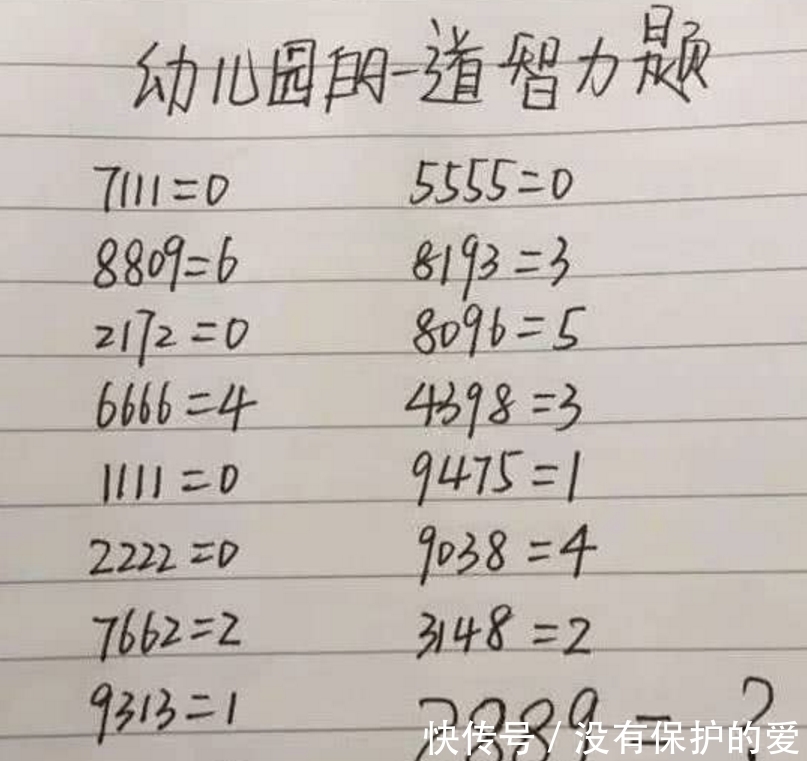 幼儿园的一道智力题
7111=0 5555=0
8809=6 8193=3
2172=0 8096=5
6666=4 4398=3
1111=0 9475=1
2222=0 9038=4
7662=2 3148=2
9313=1 2889=?
快传号 / 没有保护的爱